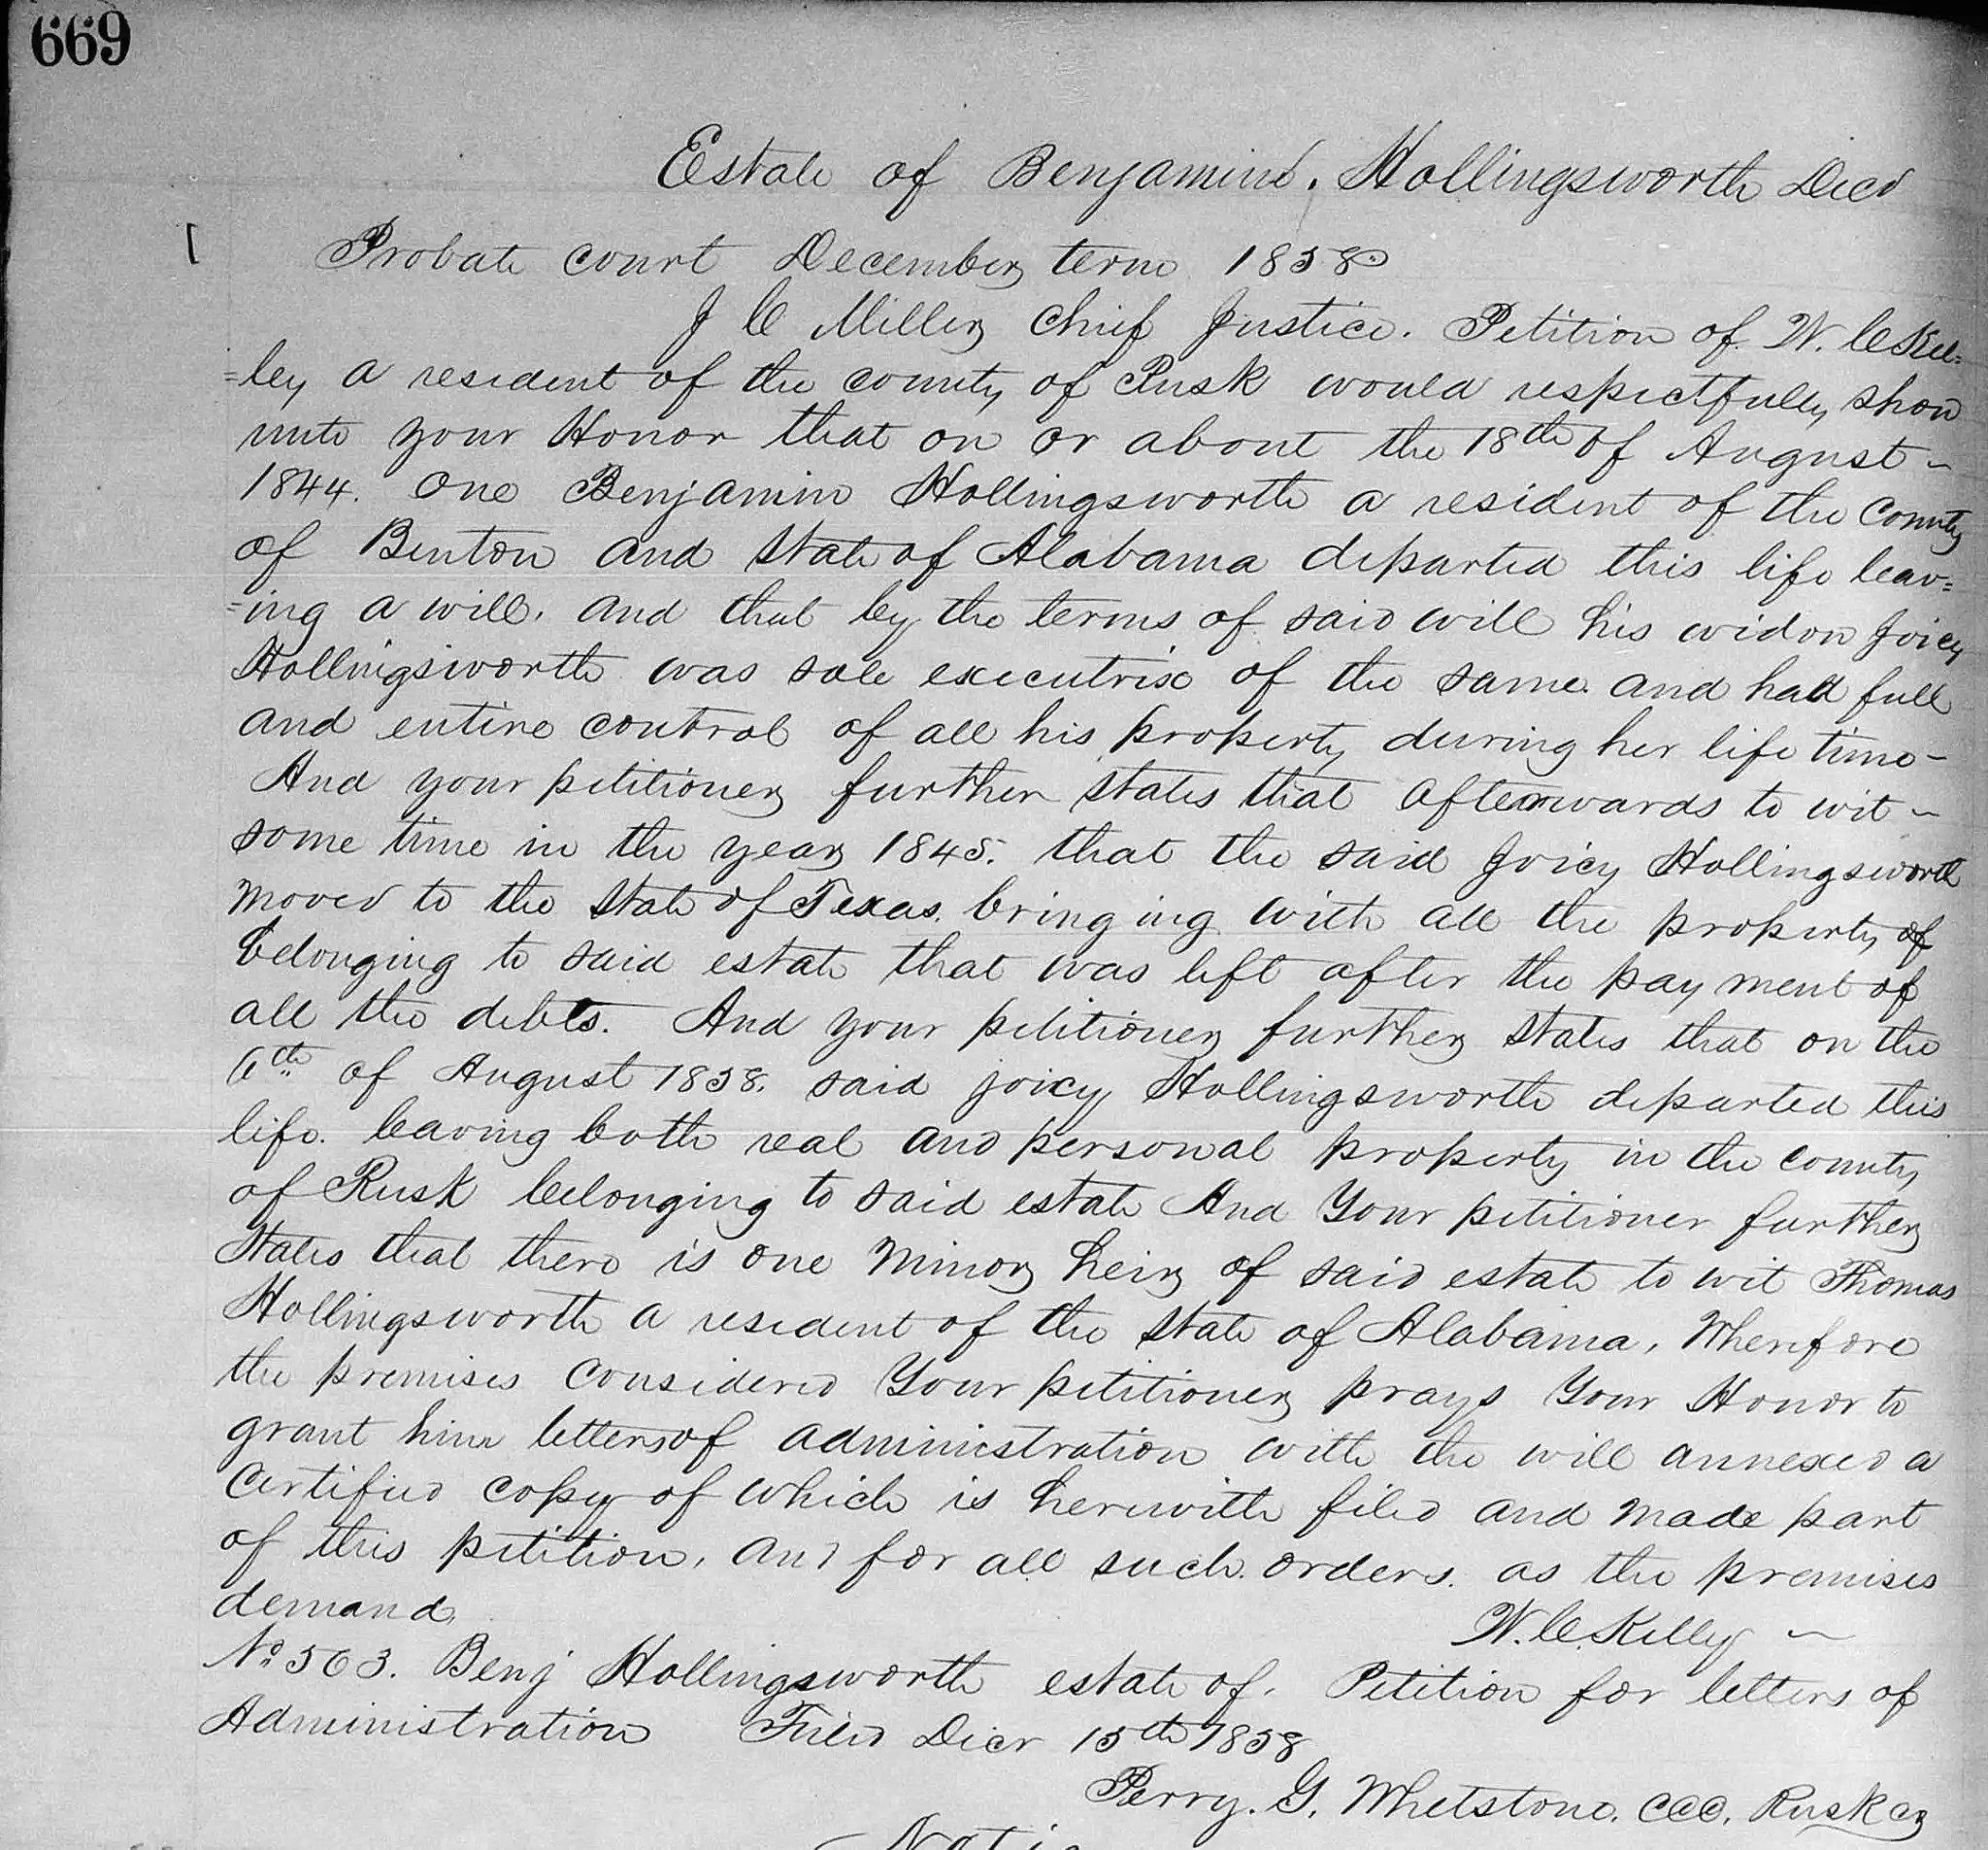 669
Estate of Benjamin. Hollingsworth Decd
Probate court December term 1858
J C Miller Chief Justice. Petition of W. C Kel=
=ley a resident of the county of Rusk would respectfully show
unto your Honor that on or about the 18th of August ~
1844. One Benjamin Hollingsworth a resident of the County
of Benton and State of Alabama departed this life leav=
=ing a will. and that by the terms of said will his widow Joicy
Hollingsworth was sole executrix of the same. and had full
and entire control of all his property during her life time ~
And your petitioner further states that afterwards to wit ~
some time in the year 1845. that the said Joicy Hollingsworth
moved to the State of Texas. bringing with all the property of
belonging to said estate that was left after the payment of
all the debts. And your petitioner further states that on the
6th of August 1858. said joicy Hollingsworth departed this
life. leaving both real and personal property in the county
of Rusk belonging to said estate And Your petitioner further
States that there is one minor heir of said estate to wit Thomas
Hollingsworth a resident of the State of Alabama, Wherefore
the premises considered Your petitioner prays Your Honor to
grant him letters of administration with the will annexed a
Certified copy of which is herewith filed and made part
of this petition. and for all such orders. as the premises
demand.
W. C. Kelly ~
No 563. Benj Hollingsworth estate of. Petition for letters of
Administration Filed Decr 15th 1858
Perry. G. Whetstone. CCC. Rusk Co